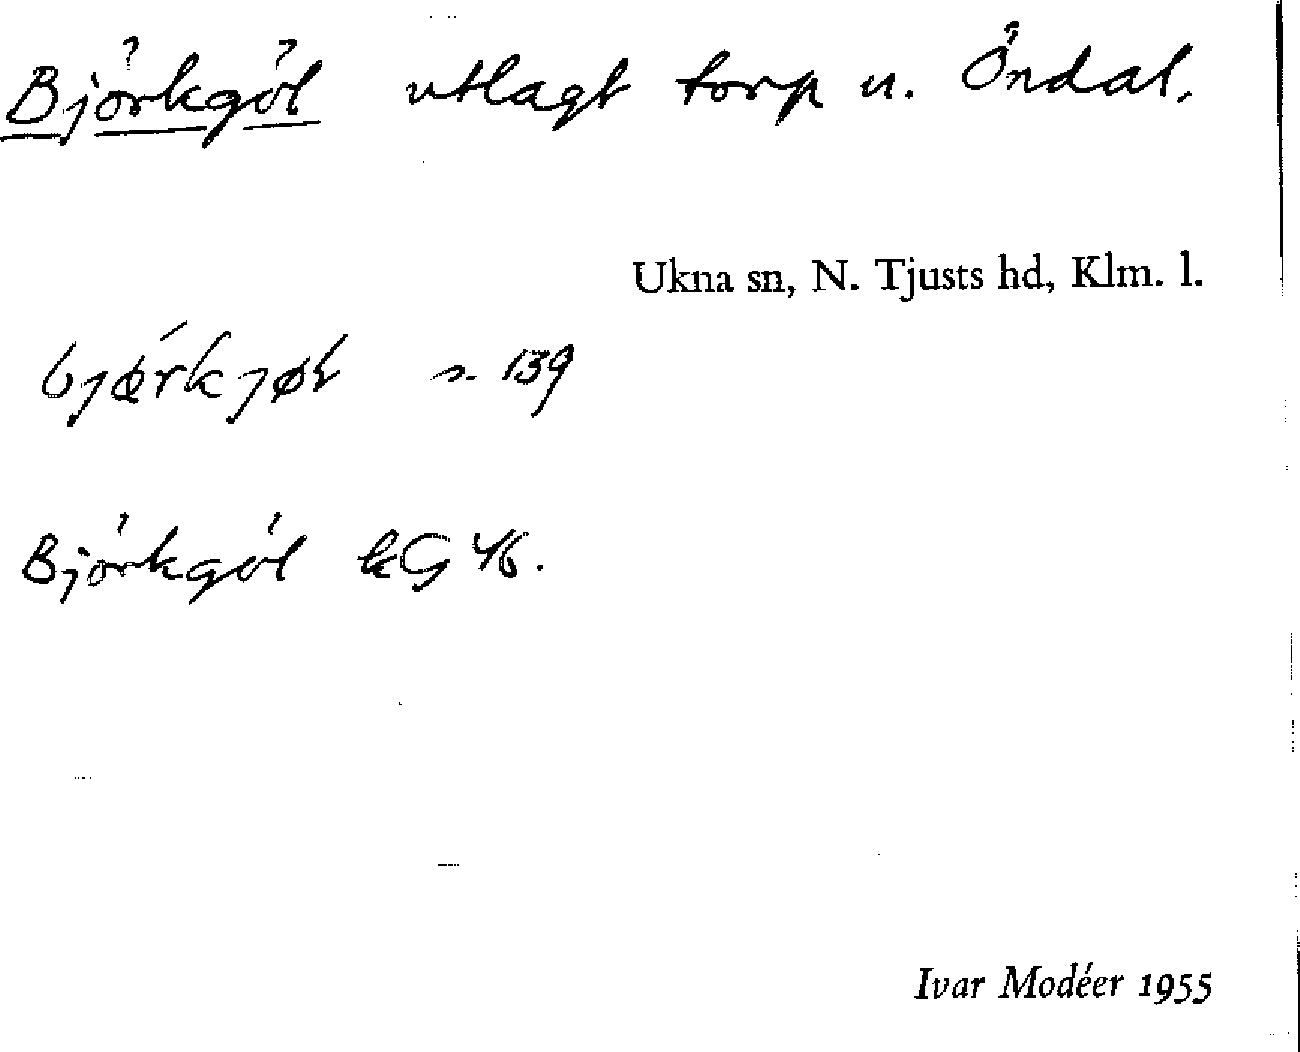 Björkgöl utlagt torp u. Öndal.
Ukna sn, N. Tjusts hd, Klm. l.
s. 139
Björkgöl kG 46.
Ivar Modéer 1955